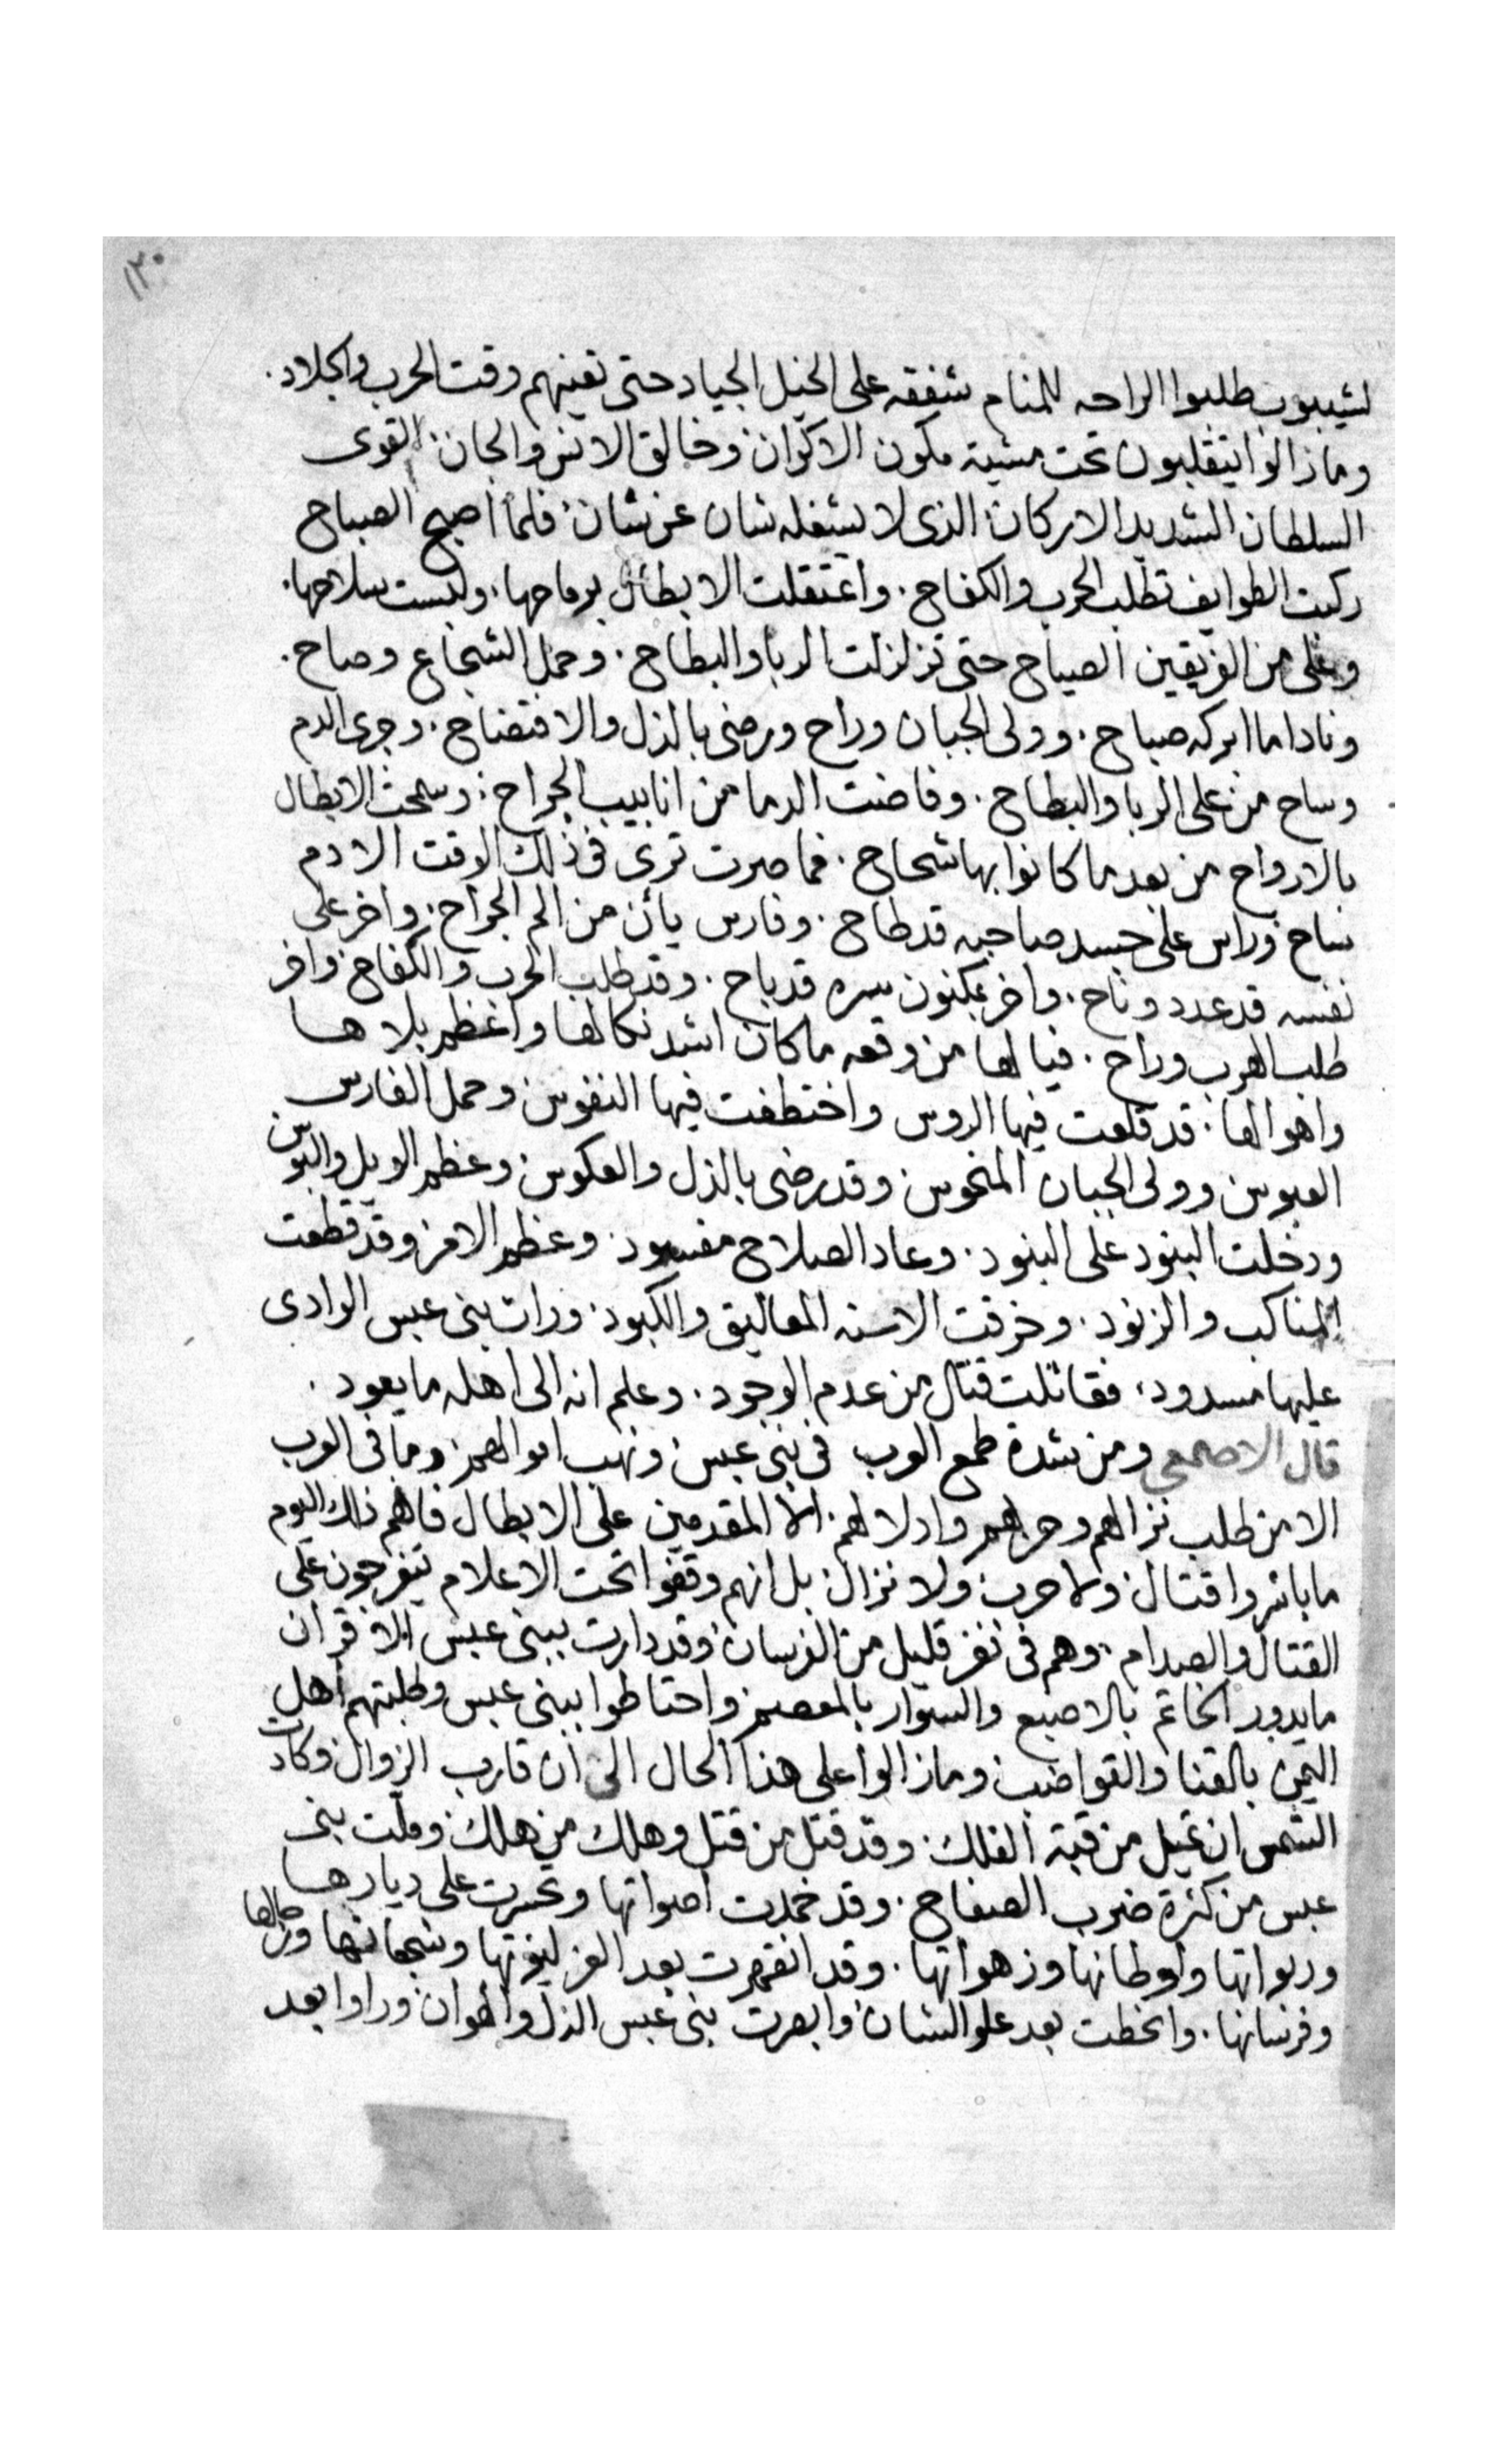 ١٢٠
لشيبوب طلبوا الراحه للمنام شفقه على الخيل الجياد حتى تعينهم وقت الحرب والجلاد.
ومازالوا يتقلبون تحت مشية مكون الاكوان وخالق الانس والجان. القوى
السلطان الشديد الاركان الذى لا يشغله شان عن شان. فلما اصبح الصباح
ركبت الطوايف تطلب الحرب والكفاح. واعتقلت الابطال برماحها. ولبست سلاحها.
وعلى من الفريقين الصياح حتى تزلزلت الربا والبطاح. وحمل الشجاع وصاح.
ونادا ما ابركه صباح. وولى الجبان وراح ورضى بالذل والافتضاح. وجرى الدم
وساح من على الربا والبطاح. وفاضت الدما من انابيب الجراح. وسمحت الابطال
بالارواح من بعد ما كانوا بها شحاح. فما صرت ترى فى ذلك الوقت الا دم
ساح وراس على جسد صاحبه قد طاح. وفارس يأن من الم الجراح. واخر على
نفسه قد عدد وناح. واخر بمكنون سره قد باح. وقد طلب الحرب والكفاح واخر
طلب الهرب وراح. فيا لها من وقعه ما كان اشد نكالها واعظم بلاها
واهوالها. قد قلعت فيها الروس واختطفت فيها النفوس وحمل الفارس
العبوس وولى الجبان المنحوس وقد رضى بالذل والعكوس وعظم الويل والبوس
ودخلت البنود على البنود. وعاد الصلاح مفسود. وعظم الامر وقد قطعت
المناكب والزنود. وخرقت الاسنه المعاليق والكبود. ورات بنى عبس الوادى
عليها مسدود. فقاتلت قتال من عدم الوجود. وعلم انه الى اهله ما يعود.
قال الاصمعى ومن شدة طمع العرب فى بنى عبس ونهب اموالهم. وما فى العرب
الا من طلب نزالهم وحربهم واذلالهم. الا المقدمين على الابطال فاهم ذلك اليوم
ما باشروا قتال ولا حرب ولا نزال. بل انهم وقفوا تحت الاعلام يتفرجون على
القتال والصدام. وهم فى نفر قليل من الفرسان وقد دارت ببنى عبس الاقران
ما يدور الخاتم بالاصبع والسوار بالمعصم واحتاطوا ببنى عبس وطلبتهم اهل
اليمن بالقنا والقواضب ومازالوا على هذا الحال الى ان قارب الزوال وكادت
الشمس ان تميل من قبة الفلك. وقد قتل من قتل وهلك من هلك وملت بنى
عبس من كثرة ضرب الصفاح. وقد خمدت اصواتها وتحسرت على ديارها
وربواتها واوطانها وزهواتها. وقد انقهرت بعد العز ليوثها وشجعانها ورجالها
وفرسانها. وانحطت بعد علو الشان وابصرت بنى عبس الذل والهوان وراوا بعد